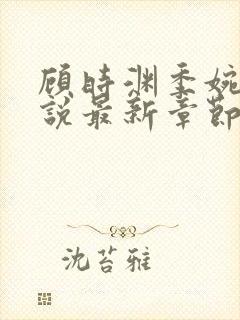 顾时渊季婉
说最新章节
沈苔雅